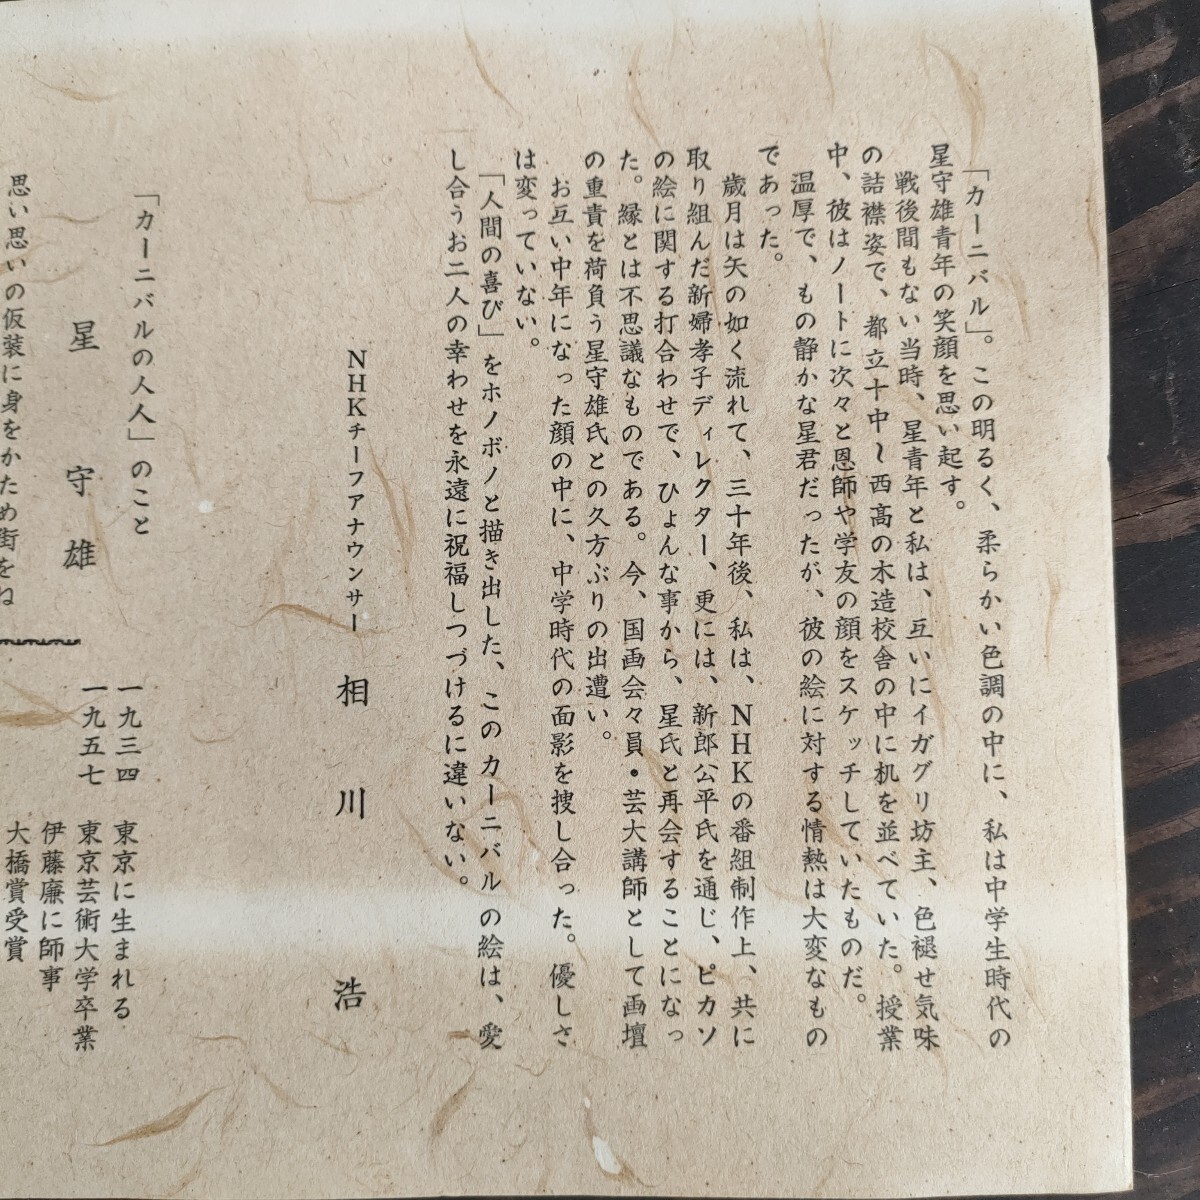 「カーニバル」。この明るく、柔らかい色調の中に、私は中学生時代の
星守雄青年の笑顔を思い起す。
戦後間もない当時、星青年と私は、互いにイガグリ坊主、色褪せ気味
の詰襟姿で、都立十中〜西高の木造校舎の中に机を並べていた。授業
中、彼はノートに次々と恩師や学友の顔をスケッチしていたものだ。
温厚で、もの静かな星君だったが、彼の絵に対する情熱は大変なもの
であった。
歳月は矢の如く流れて、三十年後、私は、NHKの番組制作上、共に
取り組んだ新婦孝子ディレクター、更には、新郎公平氏を通じ、ピカソ
の絵に関する打合わせで、ひょんな事から、星氏と再会することになっ
た。縁とは不思議なものである。今、国画会々員・芸大講師として画壇
の重責を荷負う星守雄氏との久方ぶりの出遭い。
お互い中年になった顔の中に、中学時代の面影を捜し合った。優しさ
は変っていない。
「人間の喜び」をホノボノと描き出した、このカーニバルの絵は、愛
し合うお二人の幸わせを永遠に祝福しつづけるに違いない。
NHKチーフアナウンサー 相川 浩
「カーニバルの人人」のこと
星 守雄
思い思いの仮装に身をかため街をね
一九三四 東京に生まれる
一九五七 東京芸術大学卒業
伊藤廉に師事
大橋賞受賞